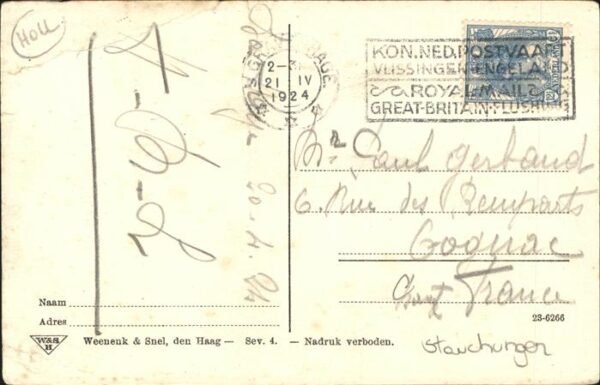 Holl
2-3
21 IV
1924
KON.NED.POSTVAART
VLISSINGEN ENGELAND
ROYAL-MAIL
GREAT-BRITAIN-FLUSHING
20.4.24
Mr Paul Gerbaud
6. Rue des Remparts
Cognac
France
Naam
Adres
W&S
H
Weenenk & Snel, den Haag — Sev. 4. — Nadruk verboden.
23-6266
Stauchungen